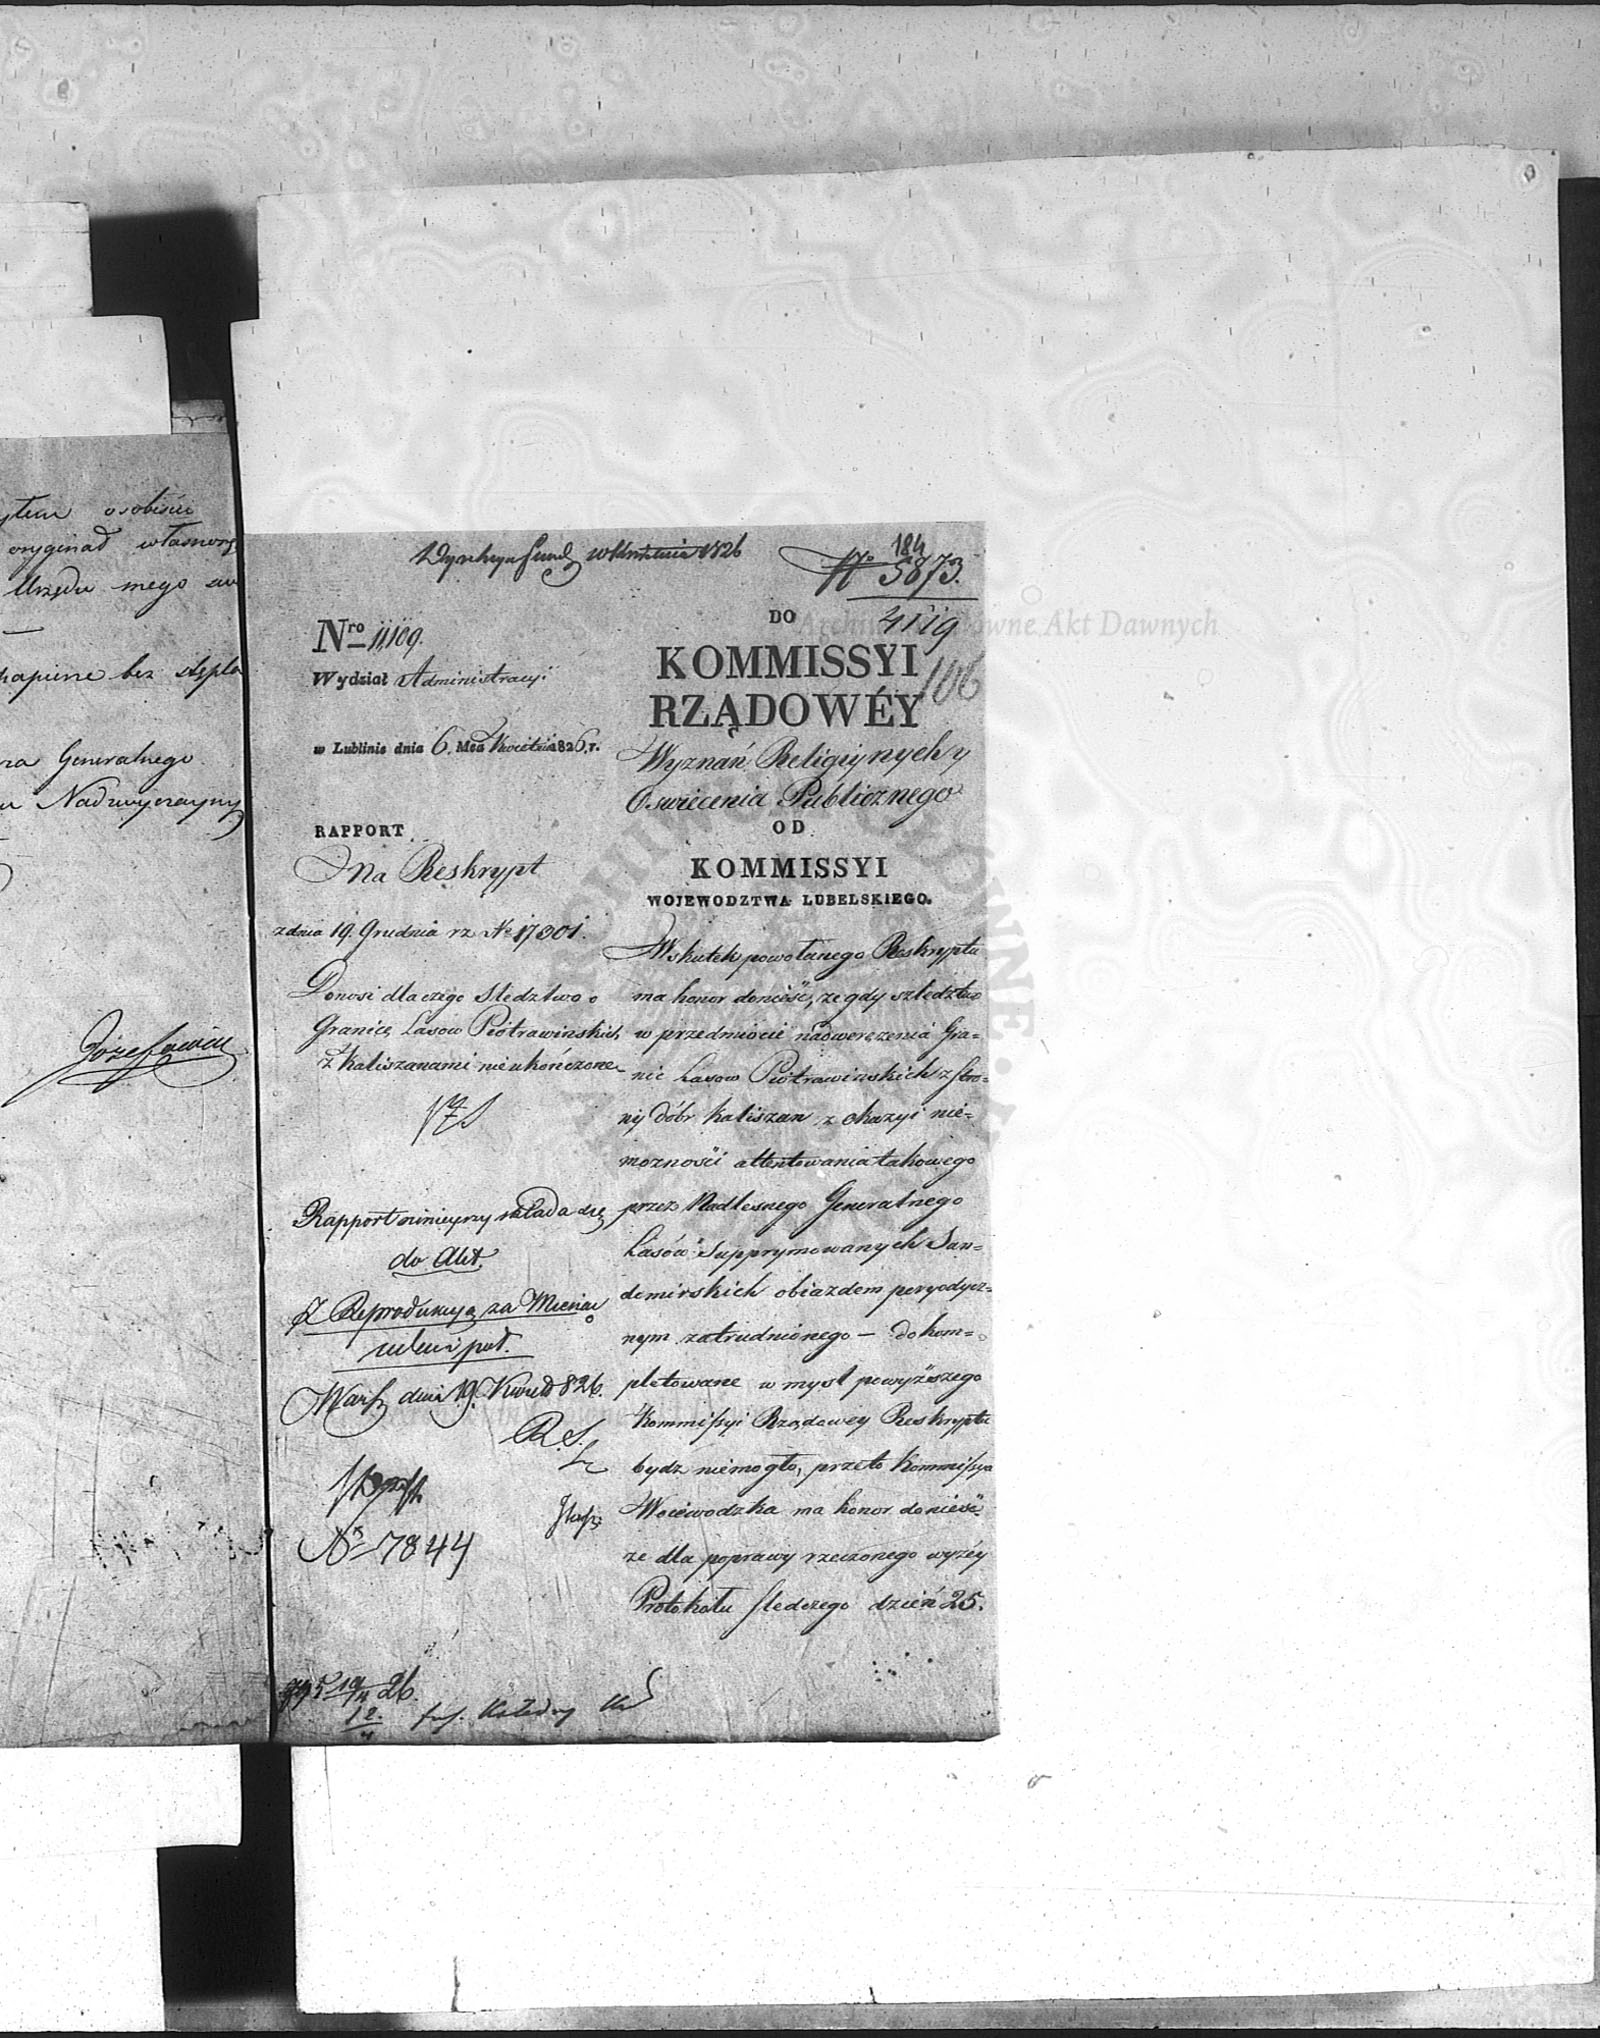 osobiście
oryginał własnorę
Urzędu mego
papierze bez stępla
Generalnego
Nadzwyczayny
Józefowicz
1826
184
N° 5873.
4119
106
Nro 11,109.
Wydział Administracyi
w Lublinie dnia 6. Mca Kwietnia 1826. r.
RAPPORT
Na Reskrypt
z dnia 19. Grudnia rz N° 17301.
Donosi dla czego Sledztwo o
Granice Lasow Piotrawinskich
z Kaliszanami nieukończone
Rapport ninieyszy składa się
do Akt.
Reprodukują za Miesiąc
Wars. dnia 19. Kwiet 826.
N° 7844
DO
KOMMISSYI
RZĄDOWÉY
Wyznań Religiynych y
Oswiecenia Publicznego
OD
KOMMISSYI
WOJEWODZTWA LUBELSKIEGO.
Wskutek powołanego Reskryptu
ma honor donieść, ze gdy szledztwo
w przedmiocie nadweręzenia Gra=
nic Lasow Piotrawinskich z stro=
ny dóbr Kaliszan z okazyi nie=
moznosci attentowania takowego
przez Nadlesnego Generalnego
Lasów Supprymowanych San=
domirskich obiazdem peryodycz=
nym zatrudnionego — do kom=
pletowane w mysl powyższego
Kommissyi Rządowey Reskryptu
bydz niemogło, przeto Kommissya
Wojewodzka ma honor donieść
ze dla poprawy rzeczonego wyzéy
Protokołu sledczego dzień 25.
Archiwum Główne Akt Dawnych